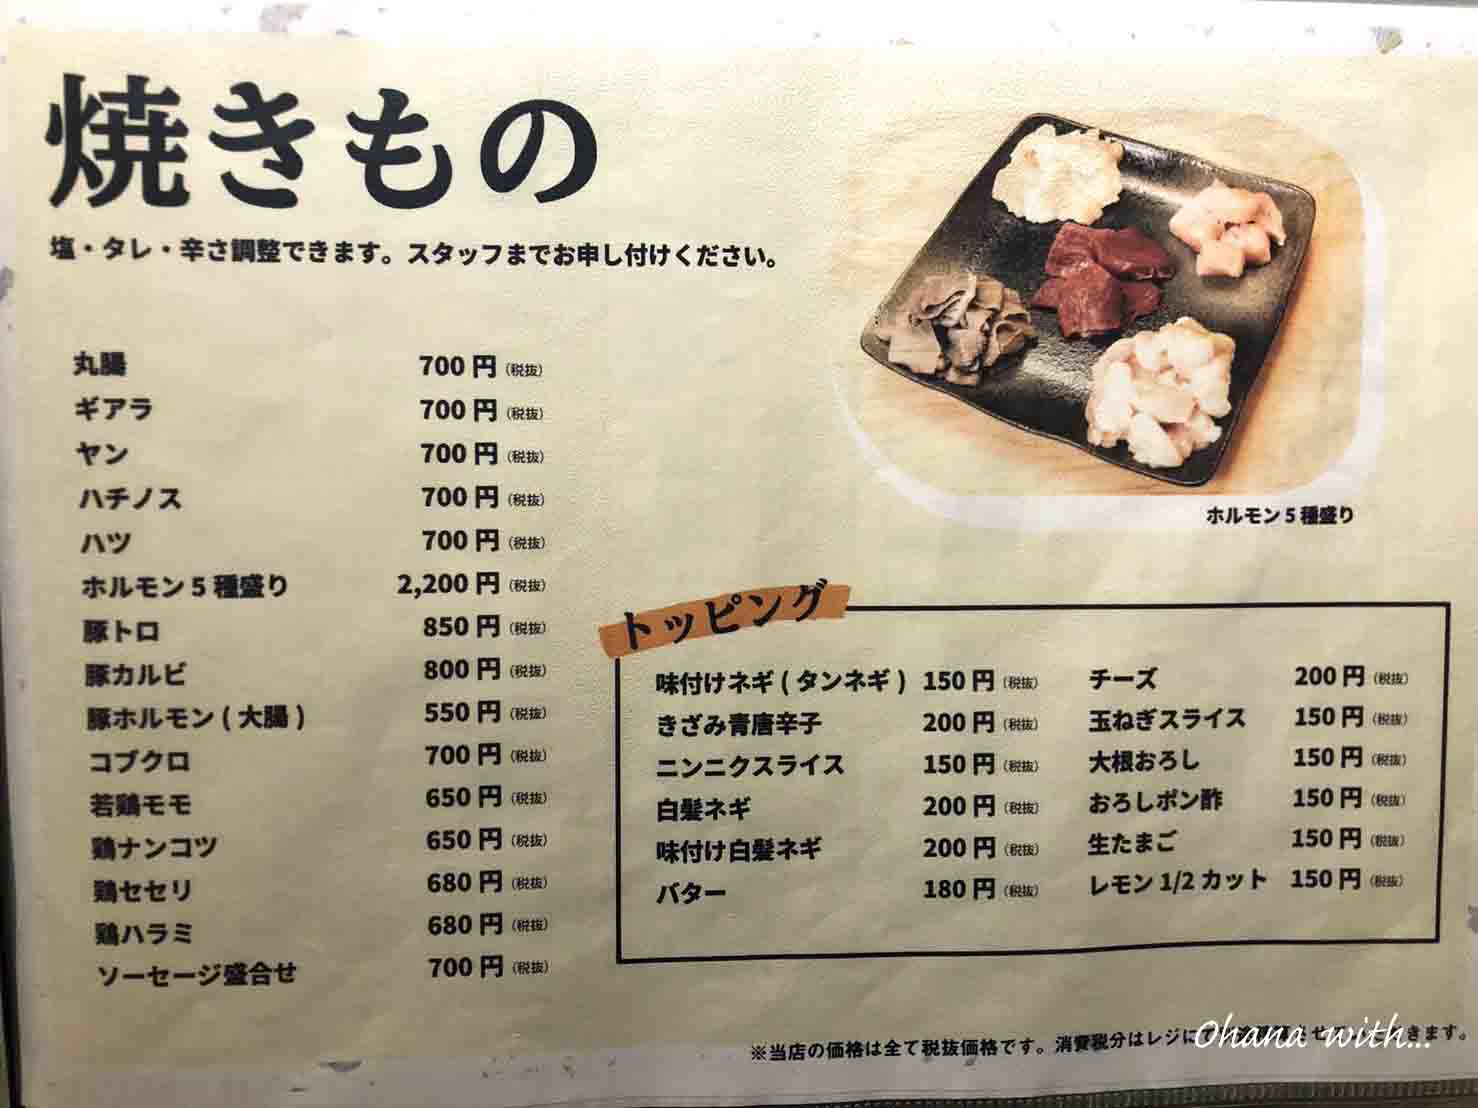 焼きもの
塩・タレ・辛さ調整できます。スタッフまでお申し付けください。
丸腸 700円(税抜)
ギアラ 700円(税抜)
ヤン 700円(税抜)
ハチノス 700円(税抜)
ハツ 700円(税抜)
ホルモン5種盛り 2,200円(税抜)
豚トロ 850円(税抜)
豚カルビ 800円(税抜)
豚ホルモン(大腸) 550円(税抜)
コブクロ 700円(税抜)
若鶏モモ 650円(税抜)
鶏ナンコツ 650円(税抜)
鶏セセリ 680円(税抜)
鶏ハラミ 680円(税抜)
ソーセージ盛合せ 700円(税抜)
ホルモン5種盛り
トッピング
味付けネギ(タンネギ) 150円(税抜)
きざみ青唐辛子 200円(税抜)
ニンニクスライス 150円(税抜)
白髪ネギ 200円(税抜)
味付け白髪ネギ 200円(税抜)
バター 180円(税抜)
チーズ 200円(税抜)
玉ねぎスライス 150円(税抜)
大根おろし 150円(税抜)
おろしポン酢 150円(税抜)
生たまご 150円(税抜)
レモン1/2カット 150円(税抜)
※当店の価格は全て税抜価格です。消費税分はレジに きます。
Ohana with...